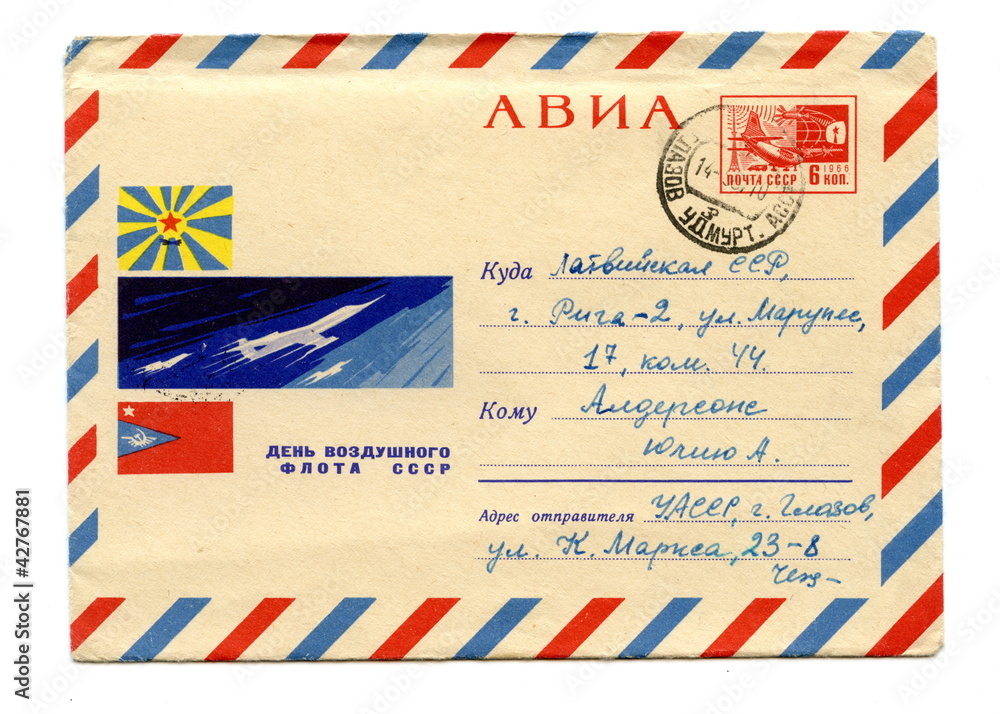 АВИА
1966
ПОЧТА СССР 6 КОП.
ГЛАЗОВ УДМУРТ. АССР
14
Куда Латвийская ССР,
г. Рига-2, ул. Марупес,
17, ком. 44.
Кому Алдерсонс
Юлию А.
ДЕНЬ ВОЗДУШНОГО
ФЛОТА СССР
Адрес отправителя УАССР, г. Глазов,
ул. К. Маркса, 23-8
Adobe Stock | #42767881